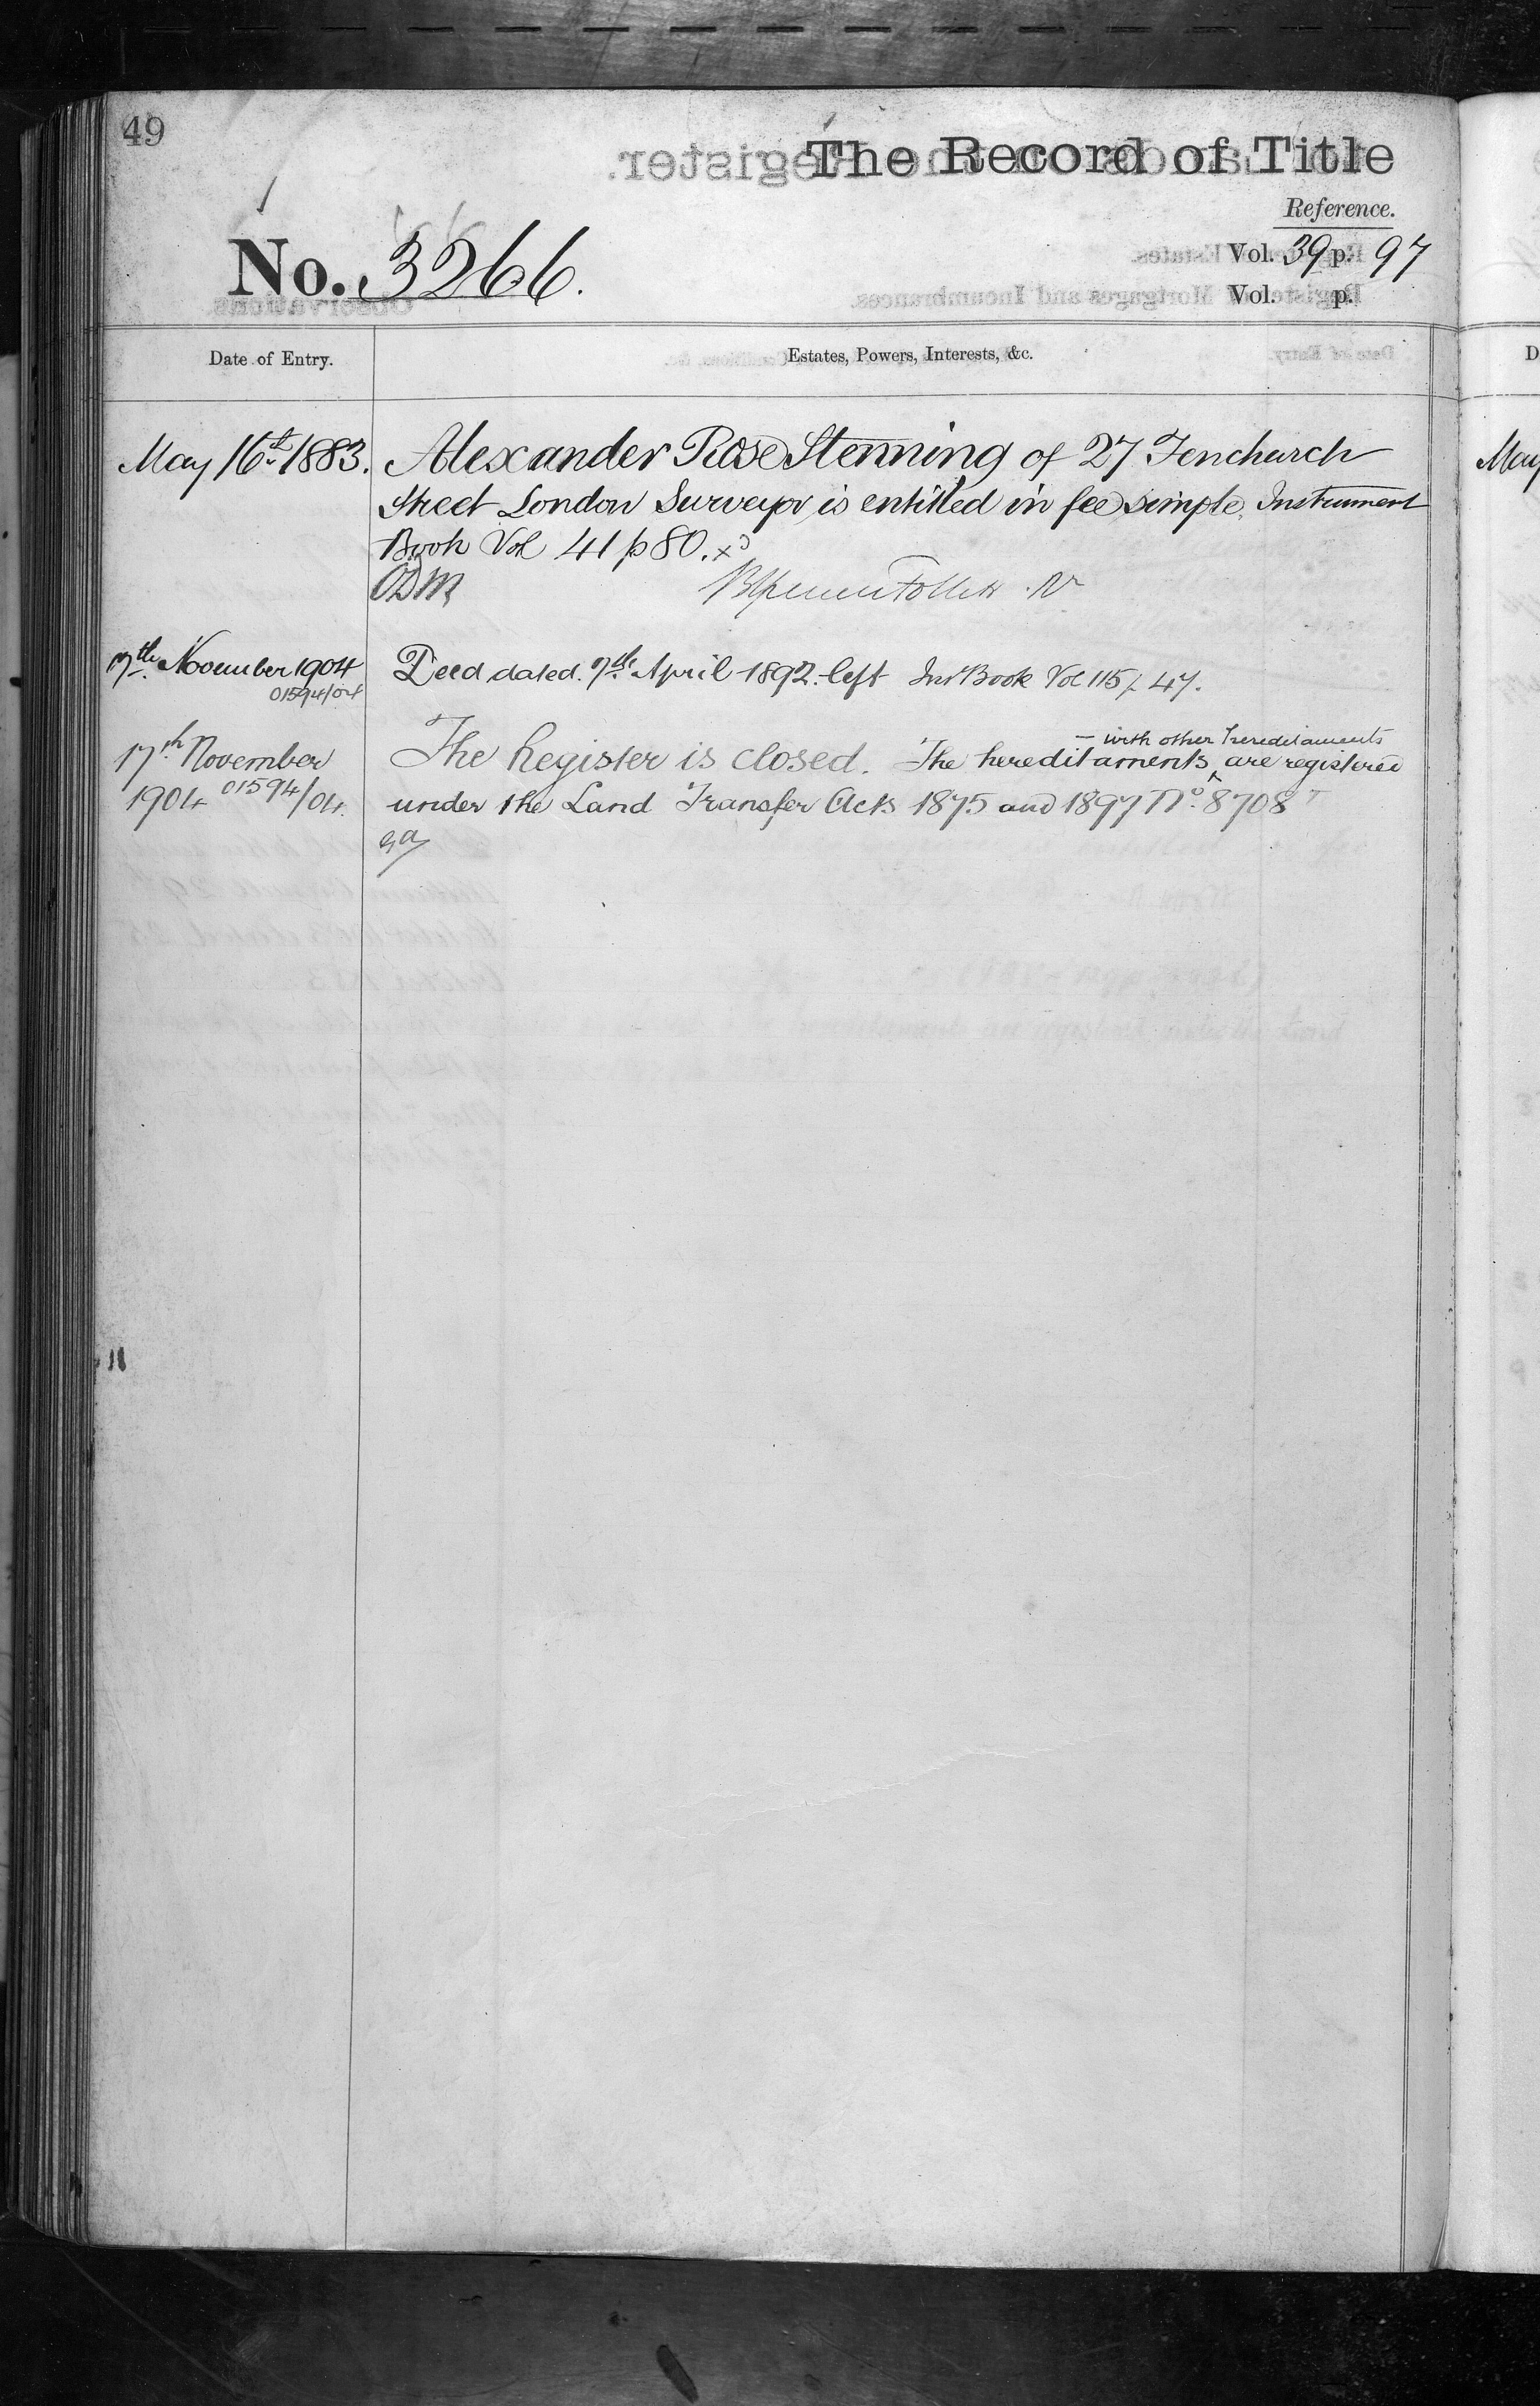 49
The Record of Title
Reference.
No. 3266.
Vol. 39 p. 97
Vol. p.
Date of Entry.
Estates, Powers, Interests, &c.
May 16th 1883.
Alexander Rose Stenning of 27 Fenchurch
Street London Surveyor is entitled in fee simple. Instrument
Book Vol 41 p 80.
17th November 1904
01594/04
Deed dated 7th April 1892 left Inst Book Vol 115 p 47.
17th November
1904 01594/04.
The Register is closed. The hereditaments with other hereditaments are registered
under the Land Transfer Acts 1875 and 1897 No. 8708